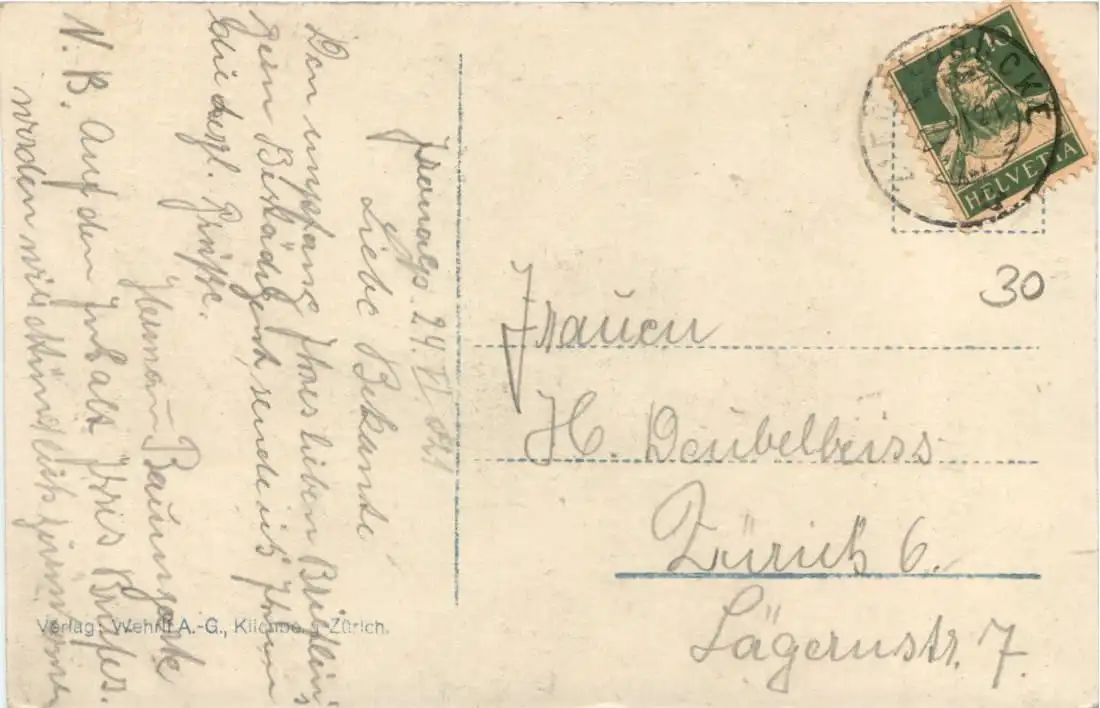 24. VI 21
Liebe Bekante
Den Empfang Ihres lieben Briefleins
zum Bestädigent, sende ich Ihnen
die herzl. Grüsse.
Hermann Baumgart
N. B. Auf den Inhalt Ihres Briefes
werden wir mündlich
Verlag: Wehrli A.-G., Kilchberg Zürich.
10
HELVETIA
30
Frauen
H. Deubelbeiss
Zürich 6.
Lägernstr. 7.